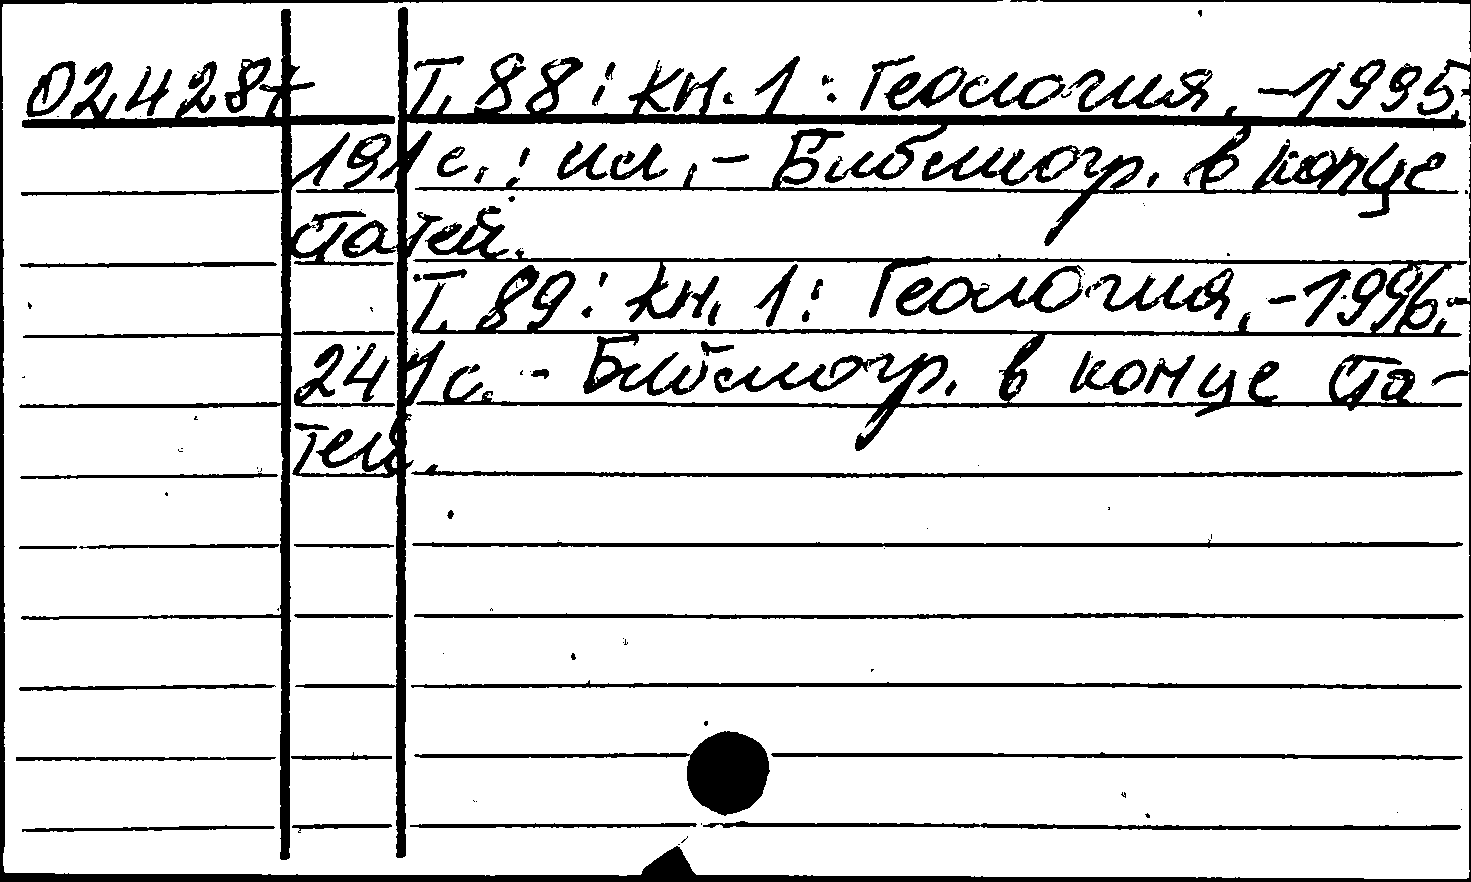 024287 Т. 88: кн. 1: Геология. - 1995. -
191 с.: ил. - Библиогр. в конце
статей.
Т. 89: кн. 1: Геология. - 1996. -
241 с. - Библиогр. в конце ста-
тей.